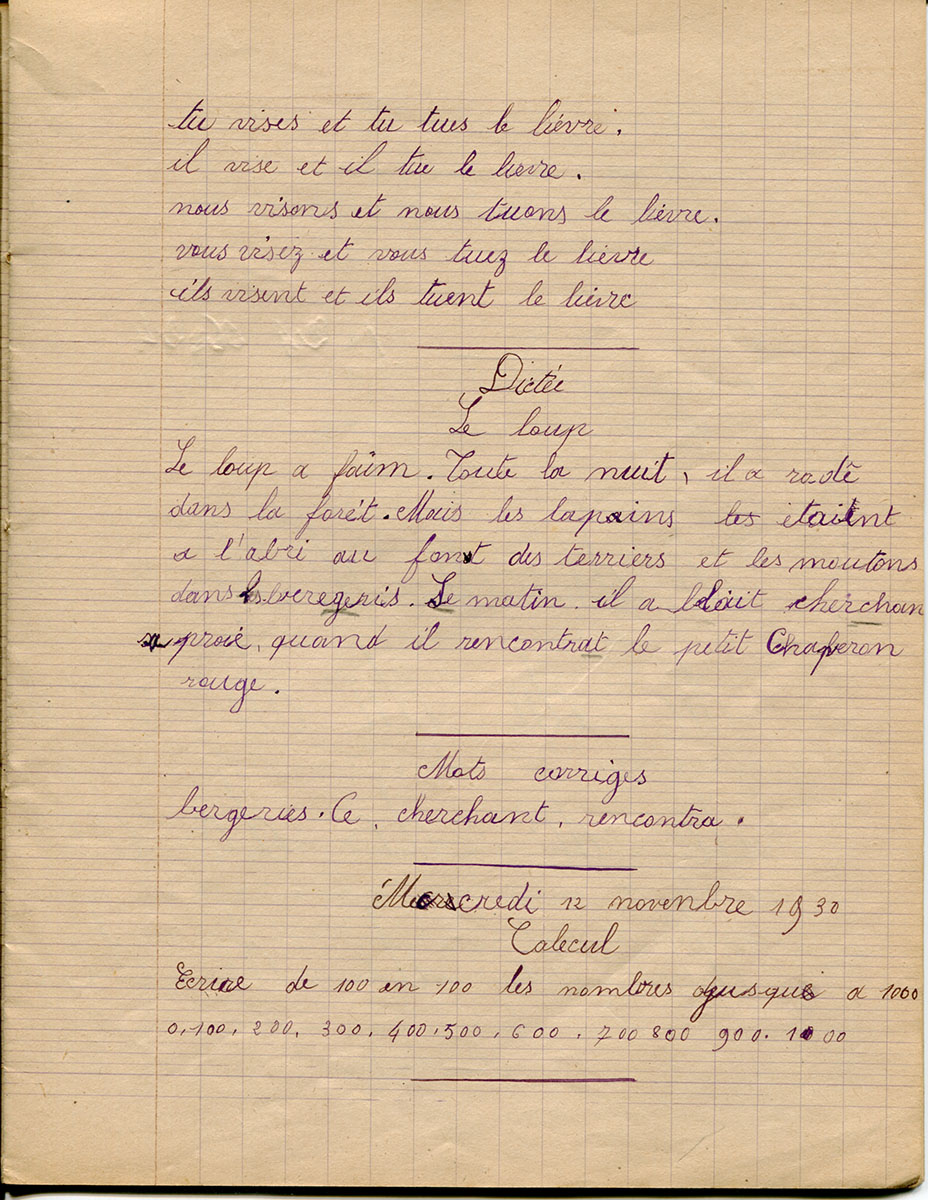 tu vises et tu tues le lièvre.
il vise et il tue le lievre.
nous visons et nous tuons le lièvre.
vous visez et vous tuez le lièvre
ils visent et ils tuent le lièvre
Dictée
Le loup
Le loup a faim. Toute la nuit, il a rodé
dans la forêt. Mais les lapains les étaient
a l'abri au font des terriers et les moutons
dans les beregeris. Le matin. il a llait cherchan
proie, quand il rencontrat le petit Chaperon
rouge.
Mots corriges
bergeries. Ce, cherchant, rencontra.
Mercredi 12 novenbre 1930
Calecul
Ecrire de 100 en 100 les nombres jusque a 1000
0,100, 200, 300, 400,500, 600, 700 800 900. 1000